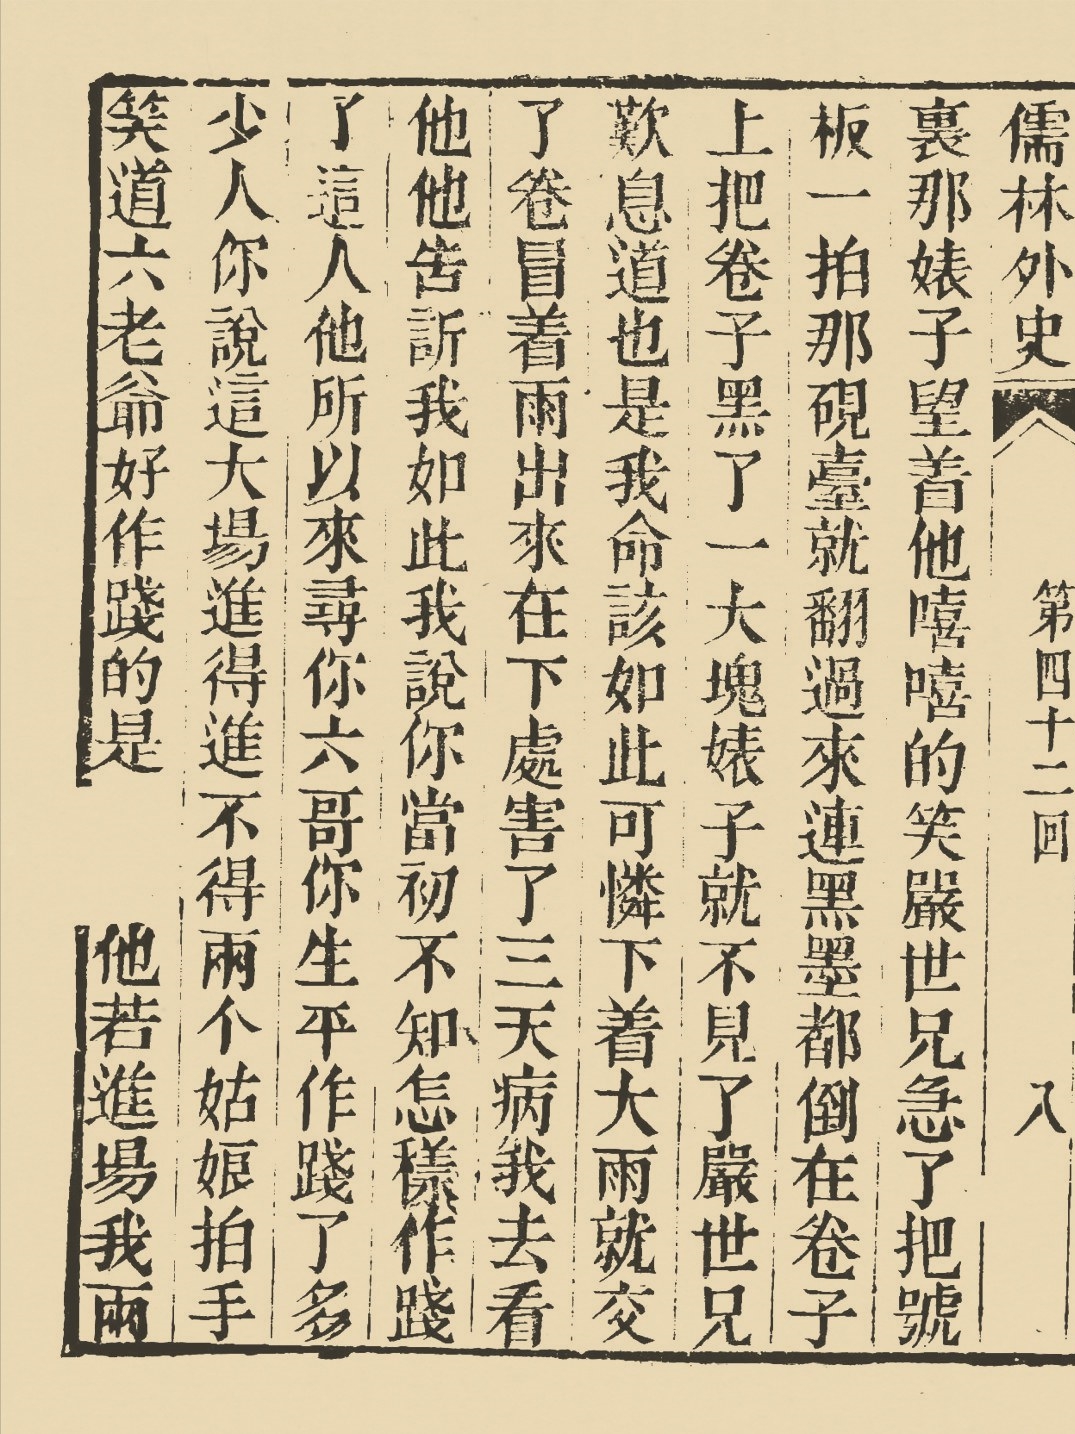 儒林外史 第四十二回 八
裏那婊子望着他嘻嘻的笑嚴世兄急了把號
板一拍那硯臺就翻過來連黑墨都倒在卷子
上把卷子黑了一大塊婊子就不見了嚴世兄
歎息道也是我命該如此可憐下着大雨就交
了卷冒着雨出來在下處害了三天病我去看
他他告訴我如此我說你當初不知怎樣作踐
了這人他所以來尋你六哥你生平作踐了多
少人你說這大場進得進不得兩个姑娘拍手
笑道六老爺好作踐的是 他若進場我兩